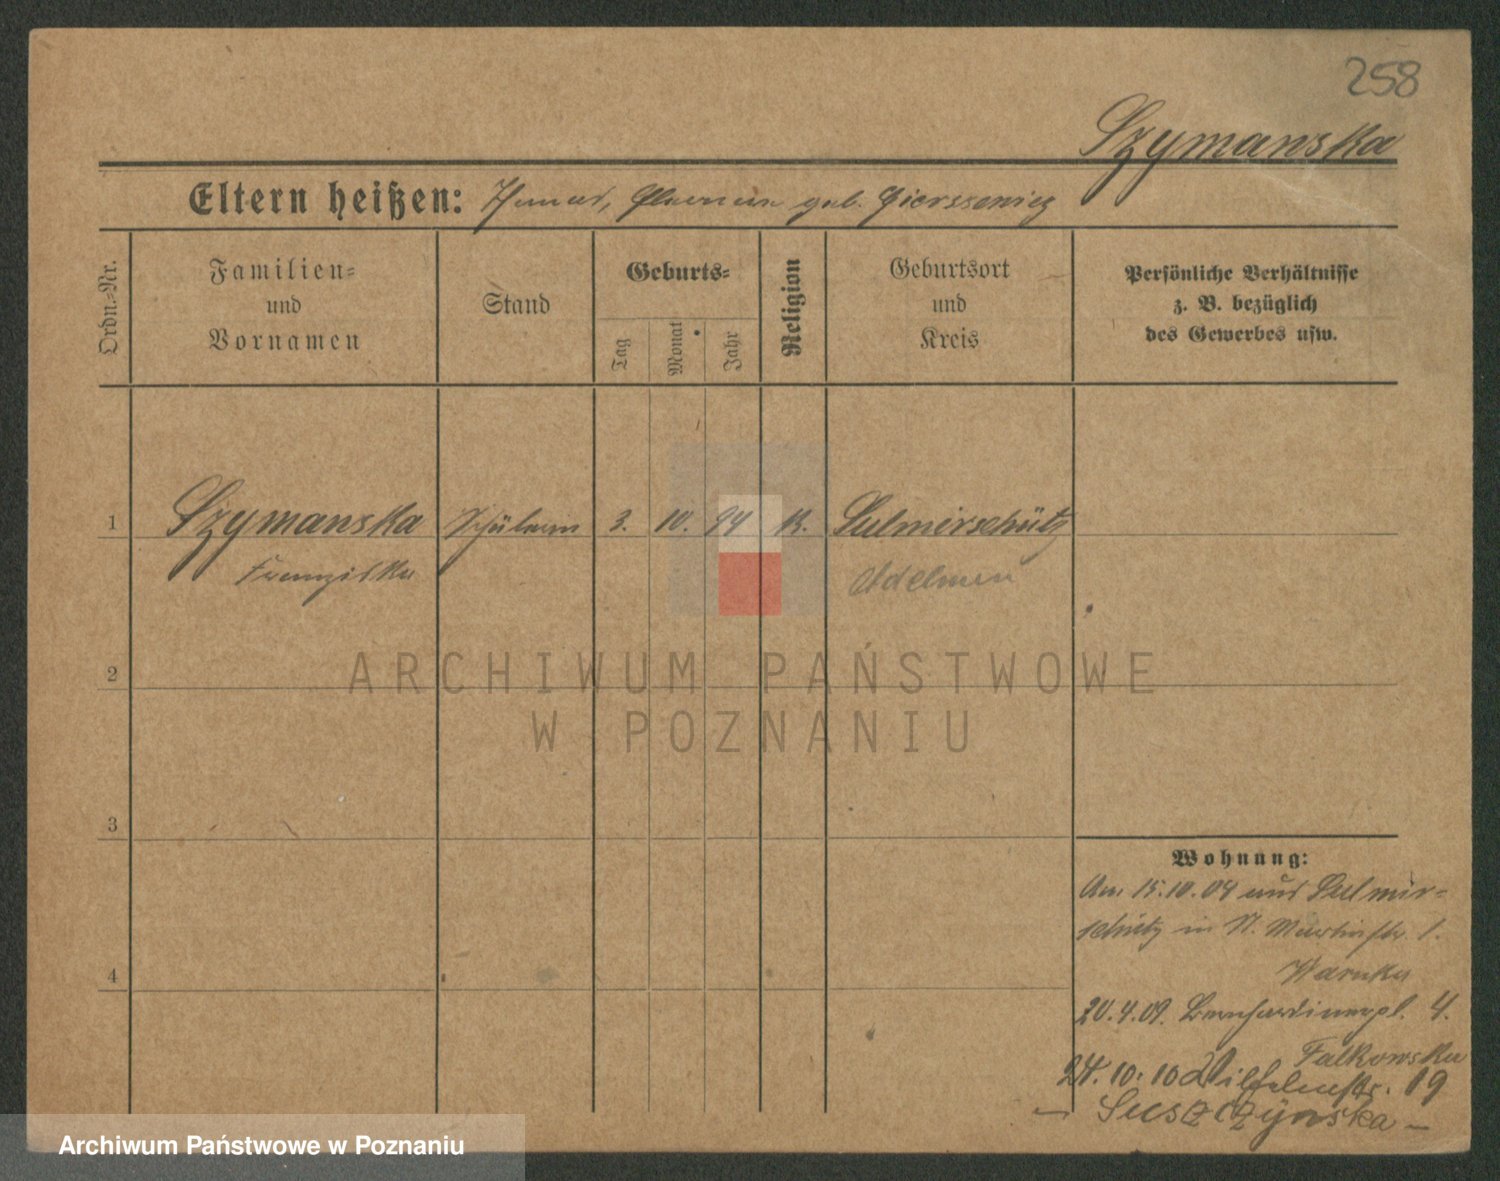 258
Szymanska
Eltern heißen: gab. Gierszewicz
Ordn.-Nr.
Familien- und Vornamen
Stand
Geburts-
Tag
Monat
Jahr
Religion
Geburtsort und Kreis
Persönliche Verhältnisse
z. B. bezüglich
des Gewerbes usw.
1 Szymanska Schülerin 3. 10. 94 k. Sulmirschütz
Franziska Adelnau
ARCHIWUM PAŃSTWOWE
2
W POZNANIU
3
Wohnung:
Am 15.10.04 aus Sulmir-
schütz in St. Martinstr. 1.
Warnka
4
20.4.09. Bernhardinerpl. 4.
Falkowska
24.10.10 Wilhelmstr. 19
— Suszczynska —
Archiwum Państwowe w Poznaniu